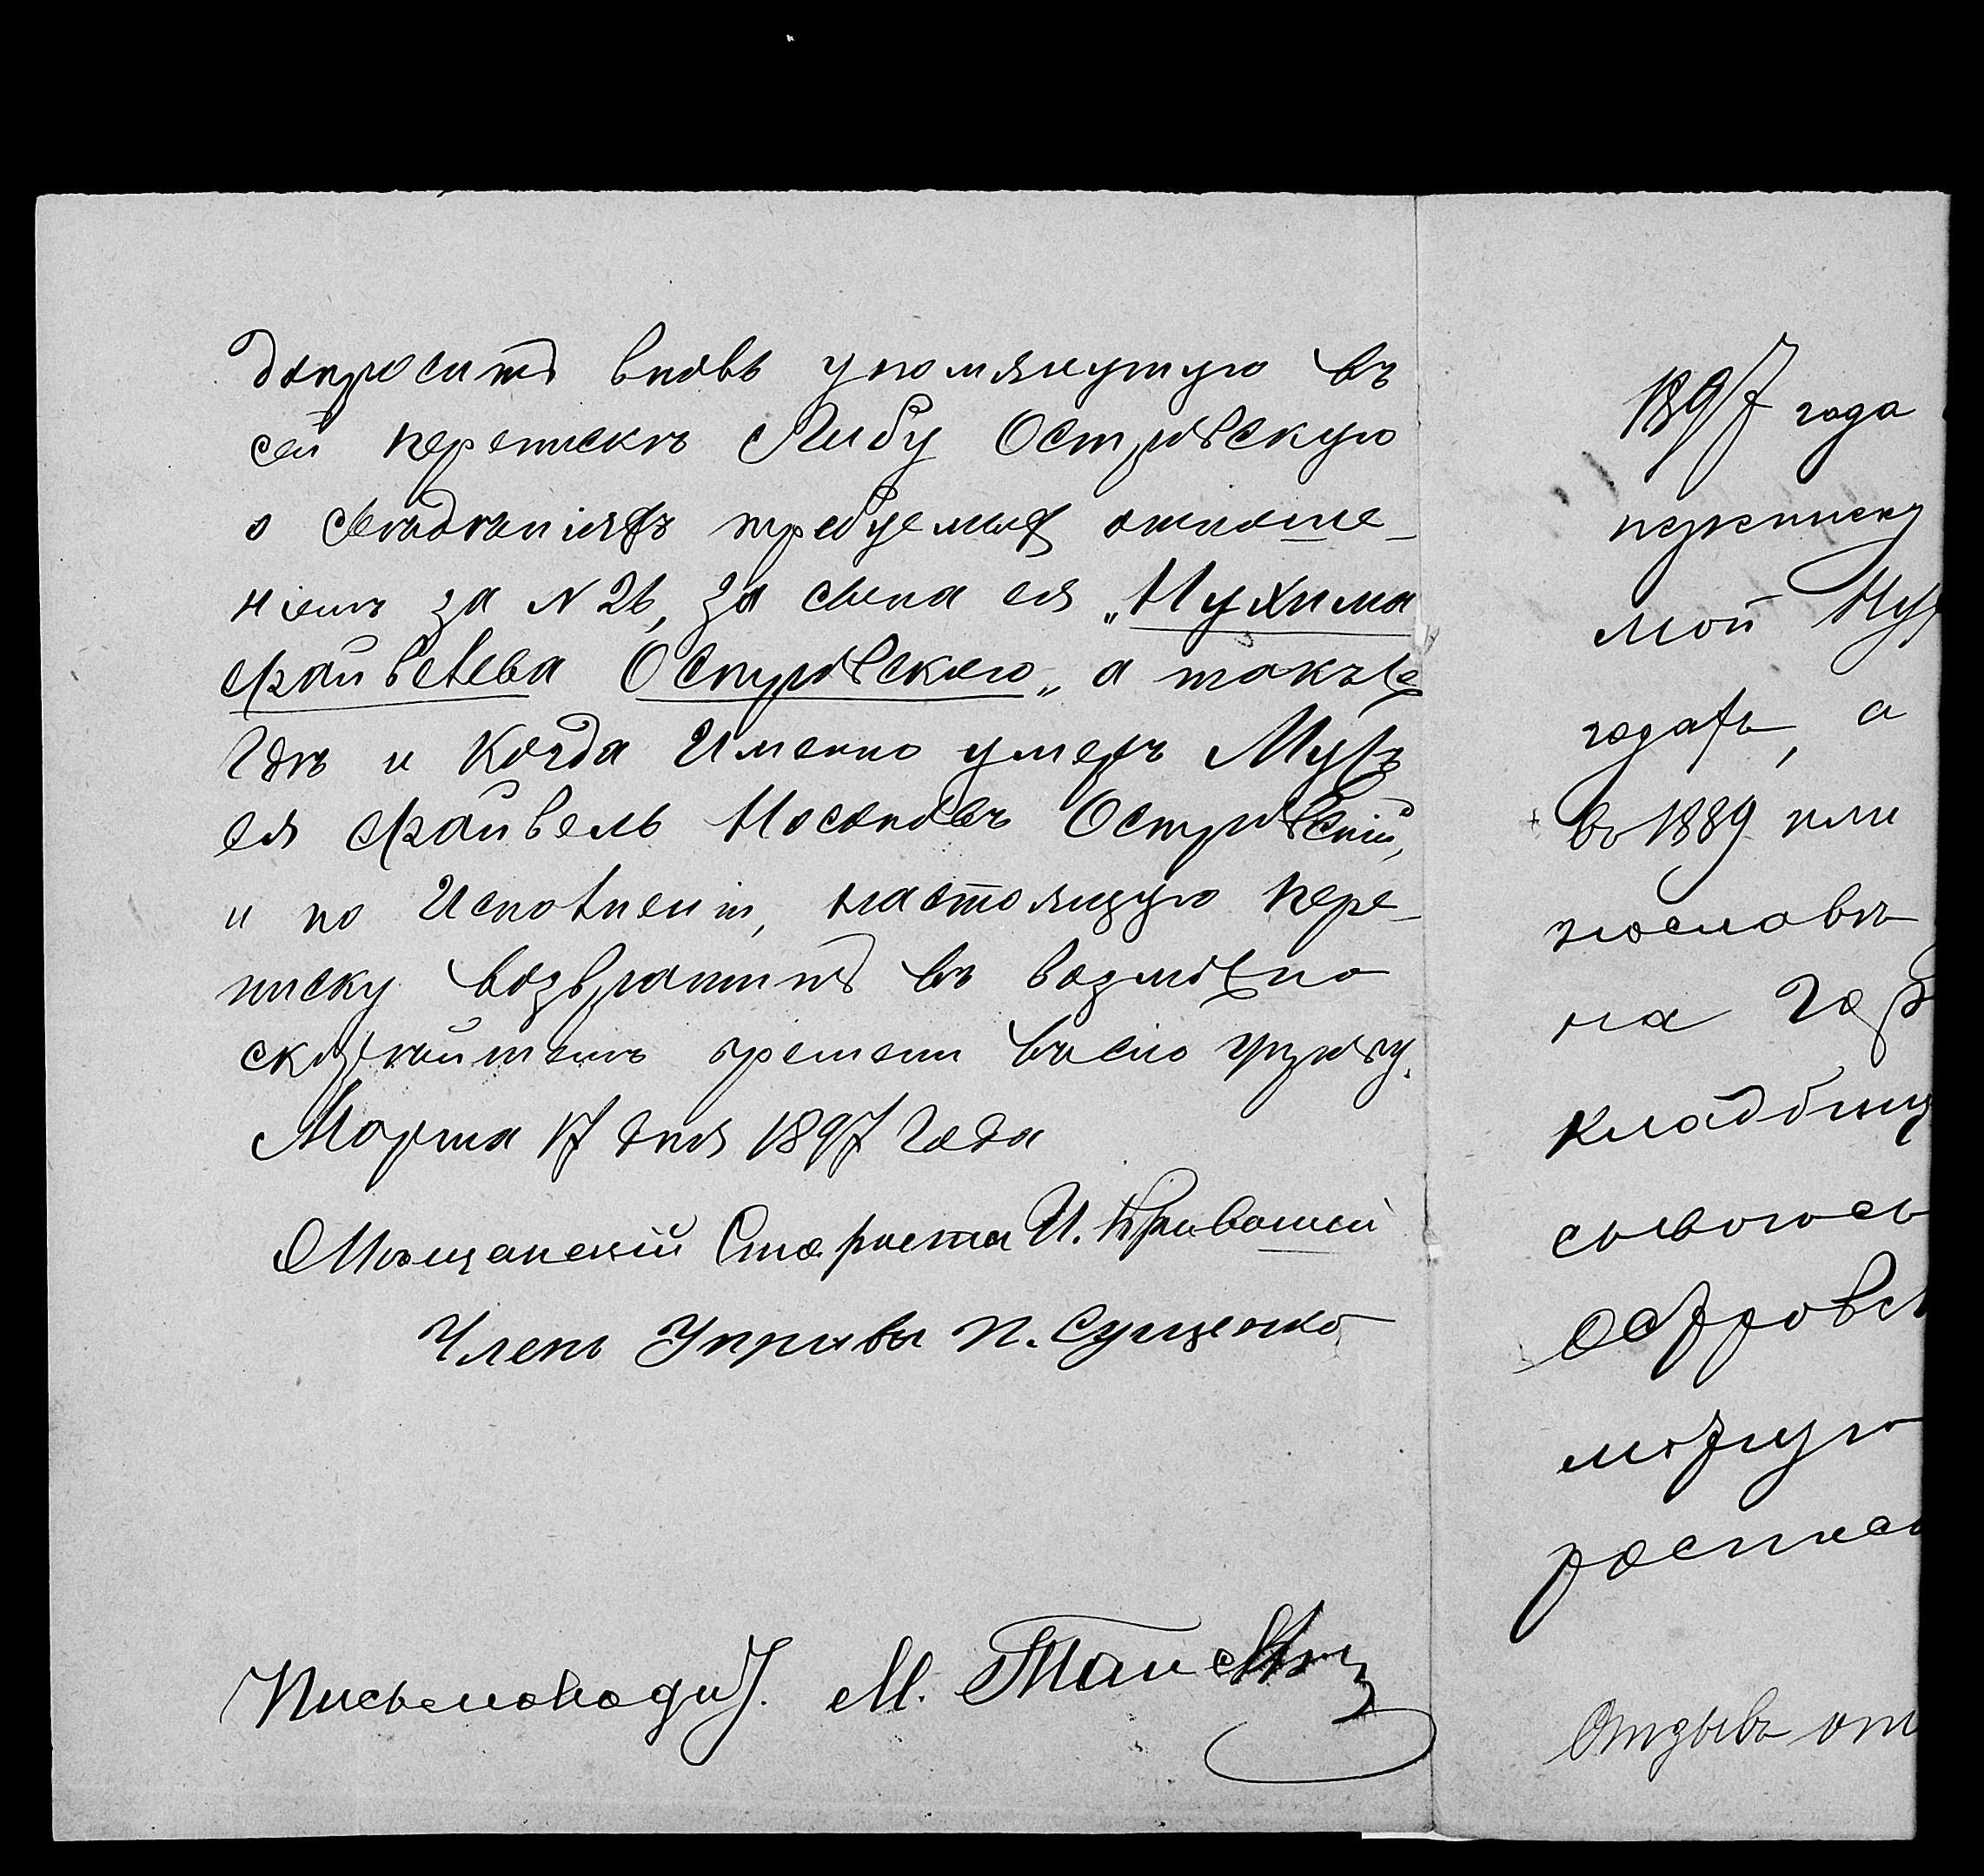 допросить вновь упомянутую въ
сей перепискѣ Либу Островскую
о свѣдѣніяхъ требуемыхъ отноше-
ніемъ за № 26, за сына ея „Нухима
Файвелева Островскаго„ а также
гдѣ и когда именно умеръ Мужъ
ея Файвель Носоновъ Островскій,
и по исполненіи, настоящую пере-
писку возвратить въ возможно
скорѣйшемъ времени въ сію управу.
Марта 17 дня 1897 года
Мѣщанскій Староста И. Кривошей
Членъ Управы П. Сущенко
Письмоводит. М.
1897 года
переписку
мой Нух
годахъ, а
въ 1889 или
на
кладбищ
сывалось
Островс
можную
роспис
Отзывъ от